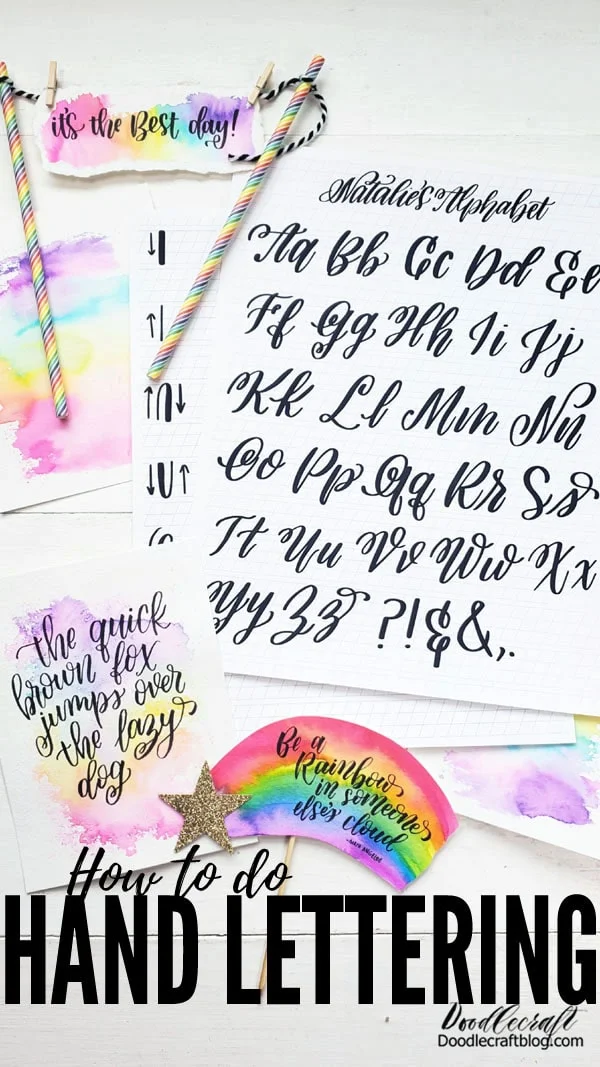 it's the Best day!
Natalie's Alphabet
Aa Bb Cc Dd Ee
Ff Gg Hh Ii Jj
Kk Ll Mm Nn
Oo Pp Qq Rr Ss
Tt Uu Vv Ww Xx
Yy Zz ?!&&,.
the quick
brown fox
jumps over
the lazy
dog
Be a
Rainbow
in someone
else's cloud
-MAYA ANGELOU
How to do
HAND LETTERING
Doodlecraft
Doodlecraftblog.com